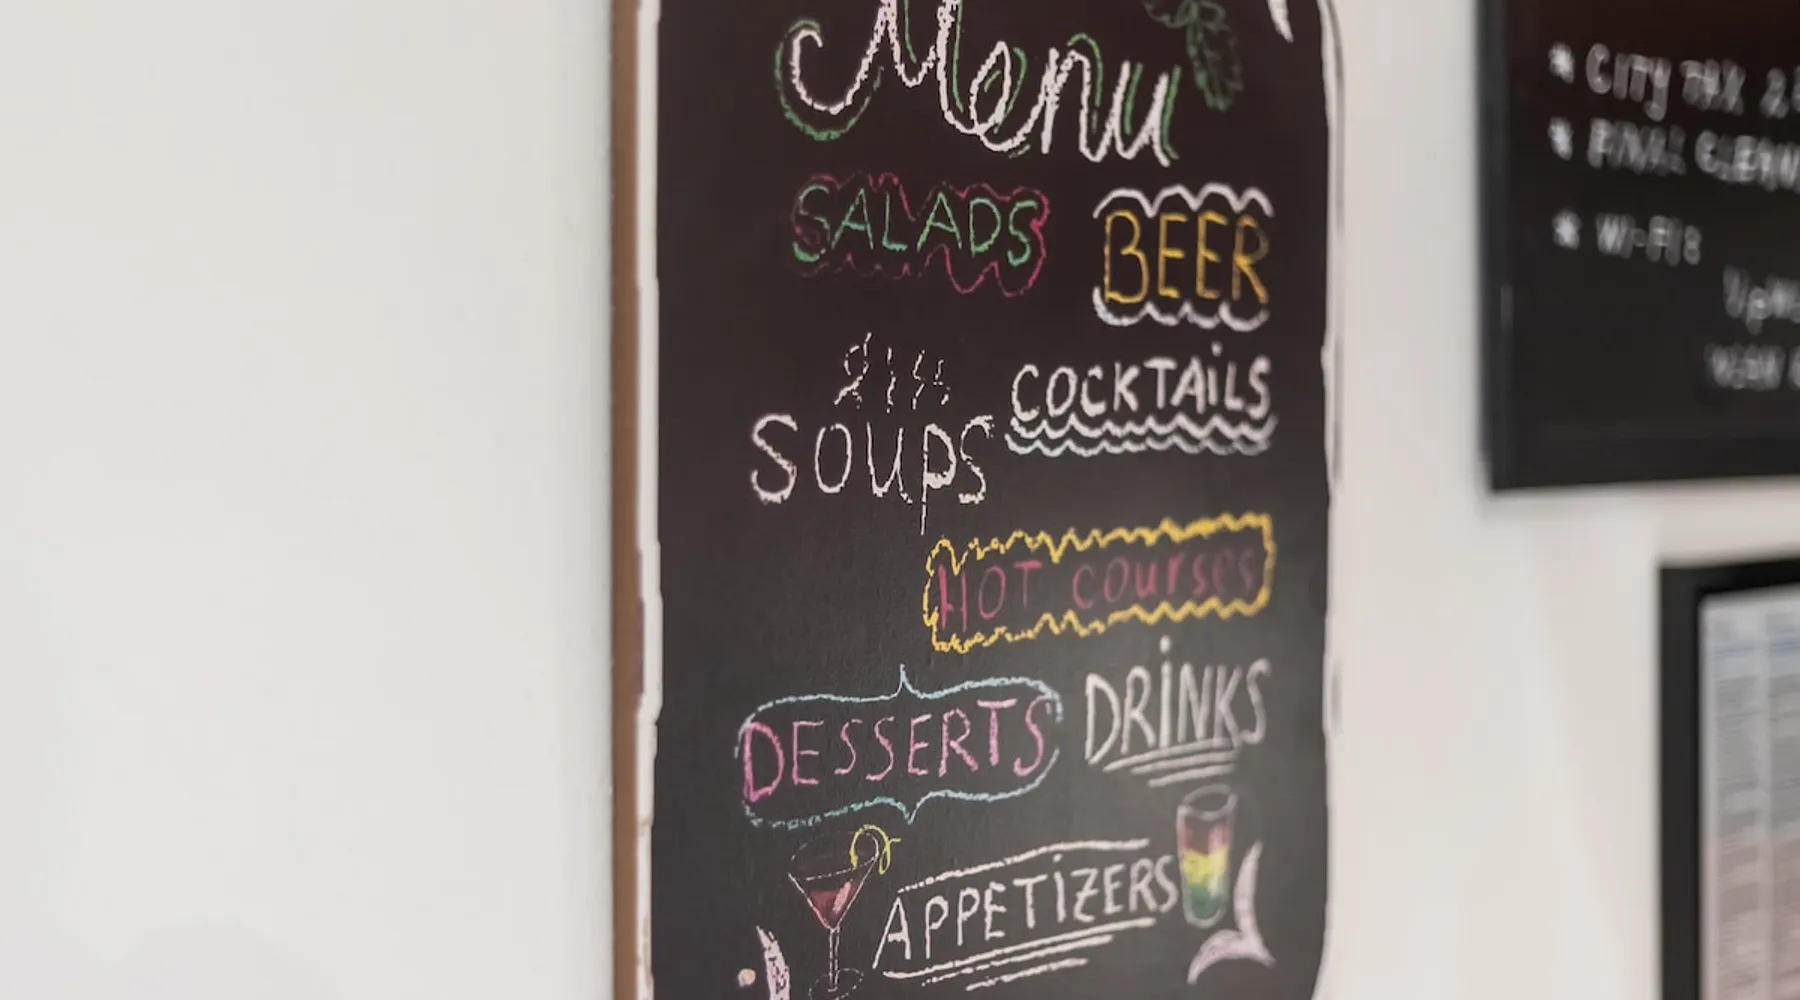 Menu
SALADS
BEER
COCKTAiLS
SOUps
HOT courses
DESSERTS
DRiNKS
APPETiZERS
* CITY TAX
* FINAL CLEAN
* Wi-Fi